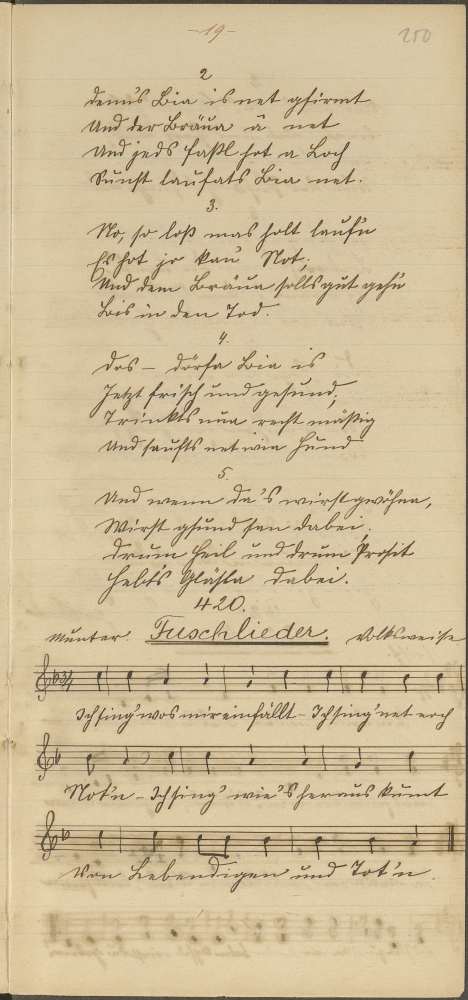 -19-
250
2
Denn's Bia is net gfirmt
Und der Bräua a net
Und jeds Faßl hot a Loch
Sunst laufats Bia net.
3.
No, so loß mas holt laufn
Es hot jo kau Not,
Und dem Bräua solls gut gehn
Bis in den Tod.
4.
Dos – dörfa Bia is
Jetzt frisch und gesund,
Trinkts nua recht mäßig
Und saufts net wia Hund
5.
Und wenn da's wirst gwöhna,
Wirst gsund san dabei,
Drum Heil und drum Prosit
Hebt's Glasla dabei.
420.
Munter. Tuschlieder. Volksweise
Ich sing' wos mir einfällt – Ich sing' net noch
Not'n – Ich sing' wie's heraus kumt
Von Lebendigen und Tot'n.